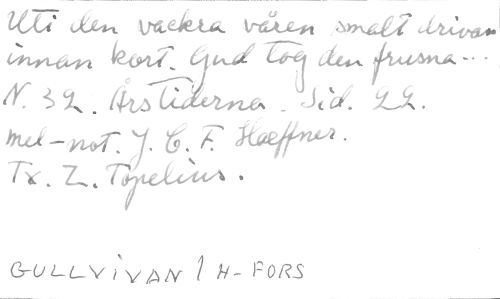 Uti den vackra våren smalt drivan
innan kort. Gud tog den frusna...
N. 32. Årstiderna. Sid. 22.
mel-not. J. C. F. Haeffner.
Tx. Z. Topelius.
GULLVIVAN / H-FORS